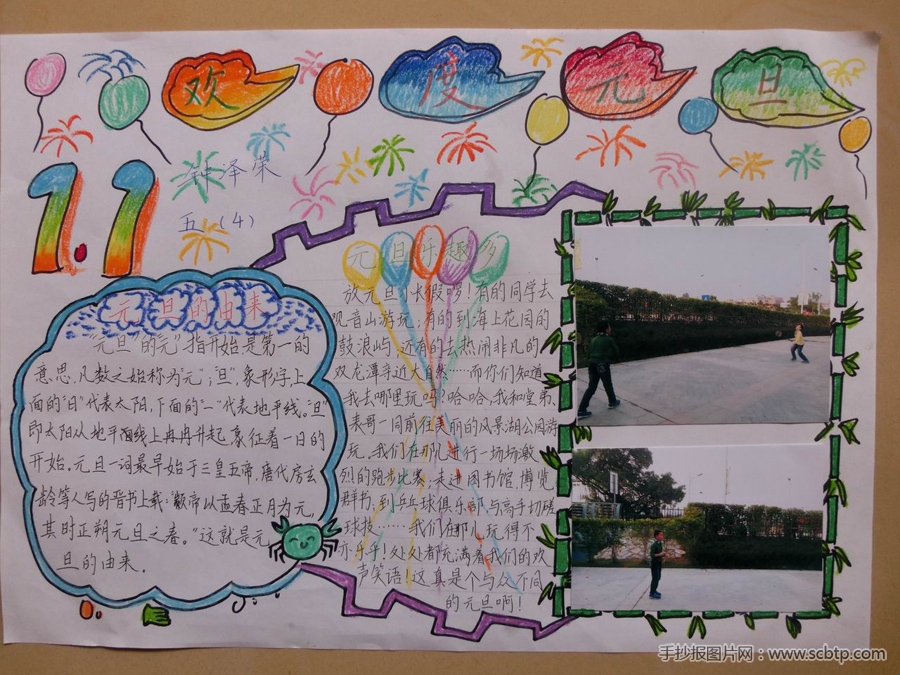 欢度元旦
1.1
钟泽荣
五（4）
元旦的由来
"元旦"的"元"指开始是第一的
意思,凡数之始称为"元";"旦",象形字,上
面的"日"代表太阳,下面的"一"代表地平线。"旦"
即太阳从地平线上冉冉升起,象征着一日的
开始。元旦一词最早始于三皇五帝,唐代房玄
龄等人写的晋书上载:"帝以孟春正月为元,
其时正朔元旦之春。"这就是元
旦的由来.
元旦乐趣多
放元旦小长假啰!有的同学去
观音山游玩;有的到海上花园的
鼓浪屿,还有的去热闹非凡的
双龙潭亲近大自然……而你们知道
我去哪里玩吗?哈哈,我和堂弟、
表哥一同前往美丽的风景湖公园游
玩。我们在那儿进行一场场激
烈的跑步比赛,走进图书馆,博览
群书,到乒乓球俱乐部与高手切磋
球技……我们在那儿玩得不
亦乐乎!处处都充满着我们的欢
声笑语!这真是个与众不同
的元旦啊!
手抄报图片网:www.scbtp.com